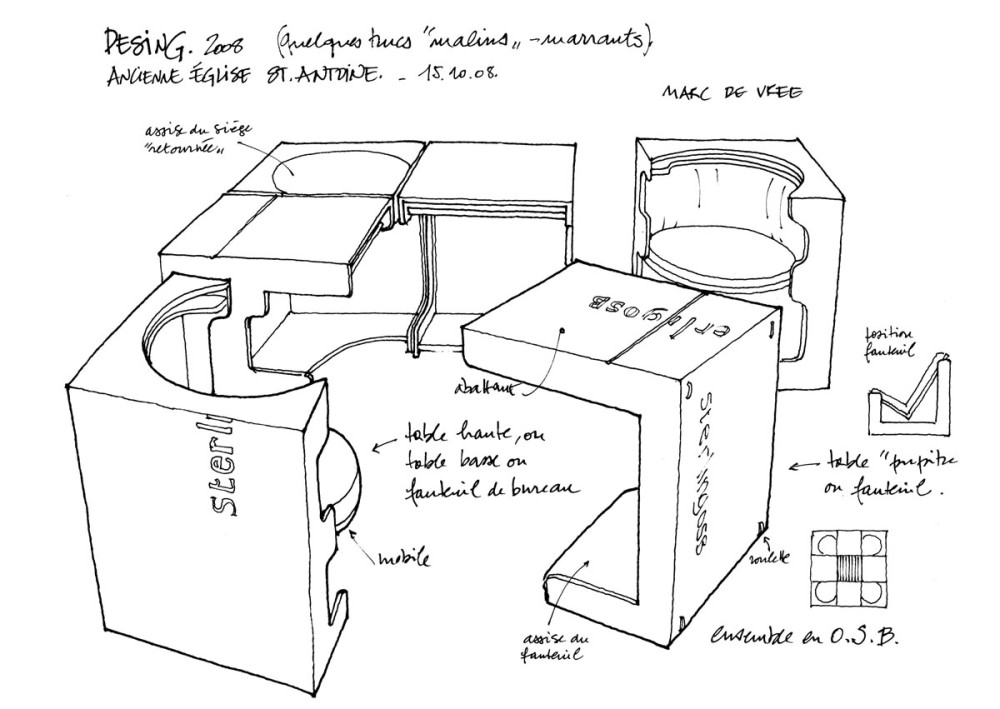 DESING. 2008 (quelques trucs "malins„ - marrants).
ANCIENNE ÉGLISE ST. ANTOINE. - 15.10.08.
MARC DE VREE
assise du siège
"retournée„
erlingosB
position
fauteuil
abattant
sterlingosB
table haute, ou
table basse ou
fauteuil de bureau
table "pupitre
ou fauteuil.
sterli
mobile
roulette
assise du
fauteuil
ensemble en O.S.B.